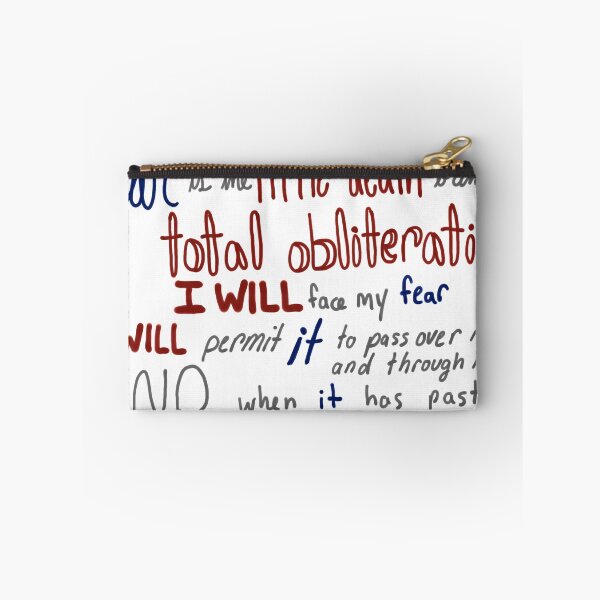 is the little death
total obliterati
I WILL face my fear
WILL permit it to pass over
and through
when it has past